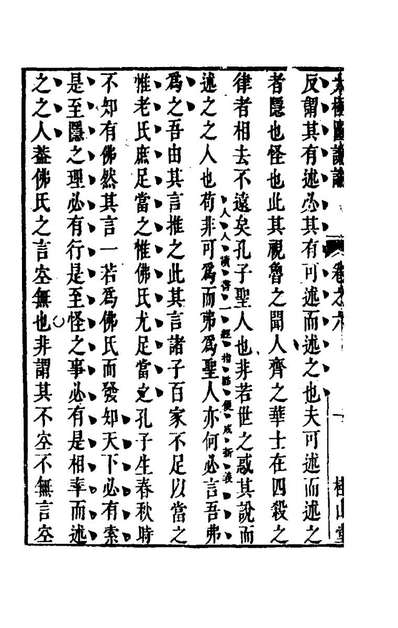 太極圖說論 卷之 桂山堂
反謂其有述必其有可述而述之也夫可述而述之
者隱也怪也此其視魯之聞人齊之華士在四殺之
律者相去不遠矣孔子聖人也非若世之惑其說而
人人讀書一經指點便成新
述之之人也苟非可爲而弗爲聖人亦何必言吾弗
爲之吾由其言推之此其言諸子百家不足以當之
惟老氏庶足當之惟佛氏尤足當之孔子生春秋時
不知有佛然其言一若爲佛氏而發知天下必有索
是至隱之理必有行是至怪之事必有是相率而述
之之人蓋佛氏之言空無也非謂其不空不無言空